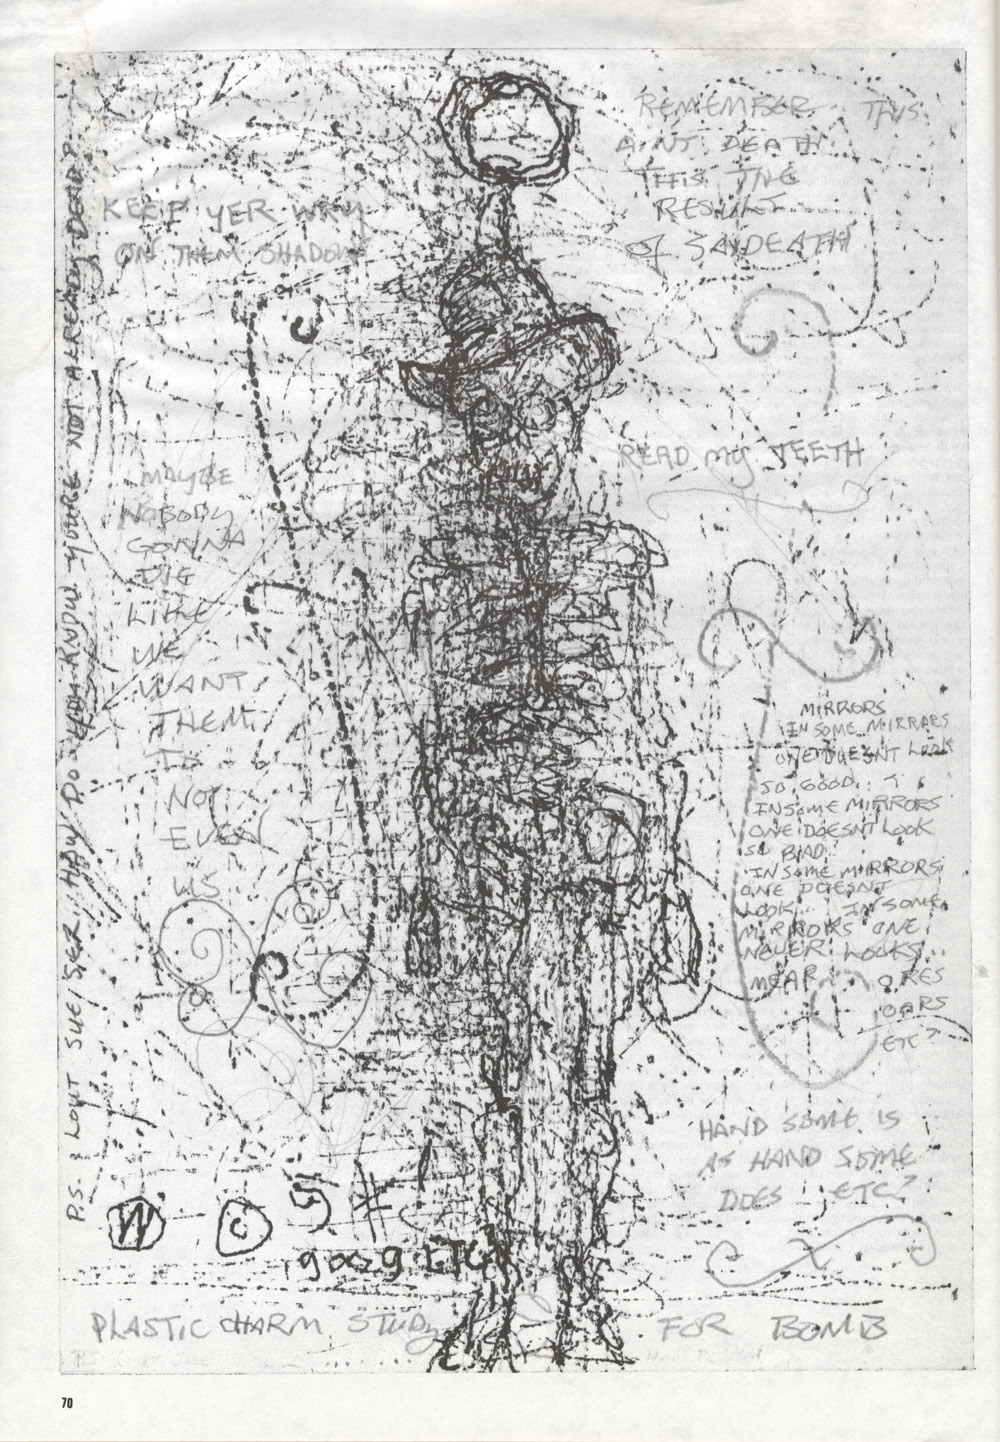 REMEMBER THIS
AINT DEATH
THIS THE
RESULT
of SAYDEATH
KEEP YER WRY
ON THEM SHADOWS
READ my TEETH
MAYBE
NOBODY
GONNA
DIG
LIKE
WE
WANT
THEM
TO
NOT
EVEN
US
MIRRORS
IN SOME MIRRORS
ONE DOESNT LOOK
SO GOOD
IN SOME MIRRORS
ONE DOESNT LOOK
SO BAD
IN SOME MIRRORS
ONE DOESNT
LOOK... IN SOME
MIRRORS ONE
NEVER LOOKS...
ORES
OARS
ETC?
HAND SOME IS
AS HAND SOME
DOES ETC?
P.S. HOW DO YOU KNOW YOURE NOT ALREADY DEAD?
W C 5 #
ETC
PLASTIC CHARM STUDy FOR BOMB
70